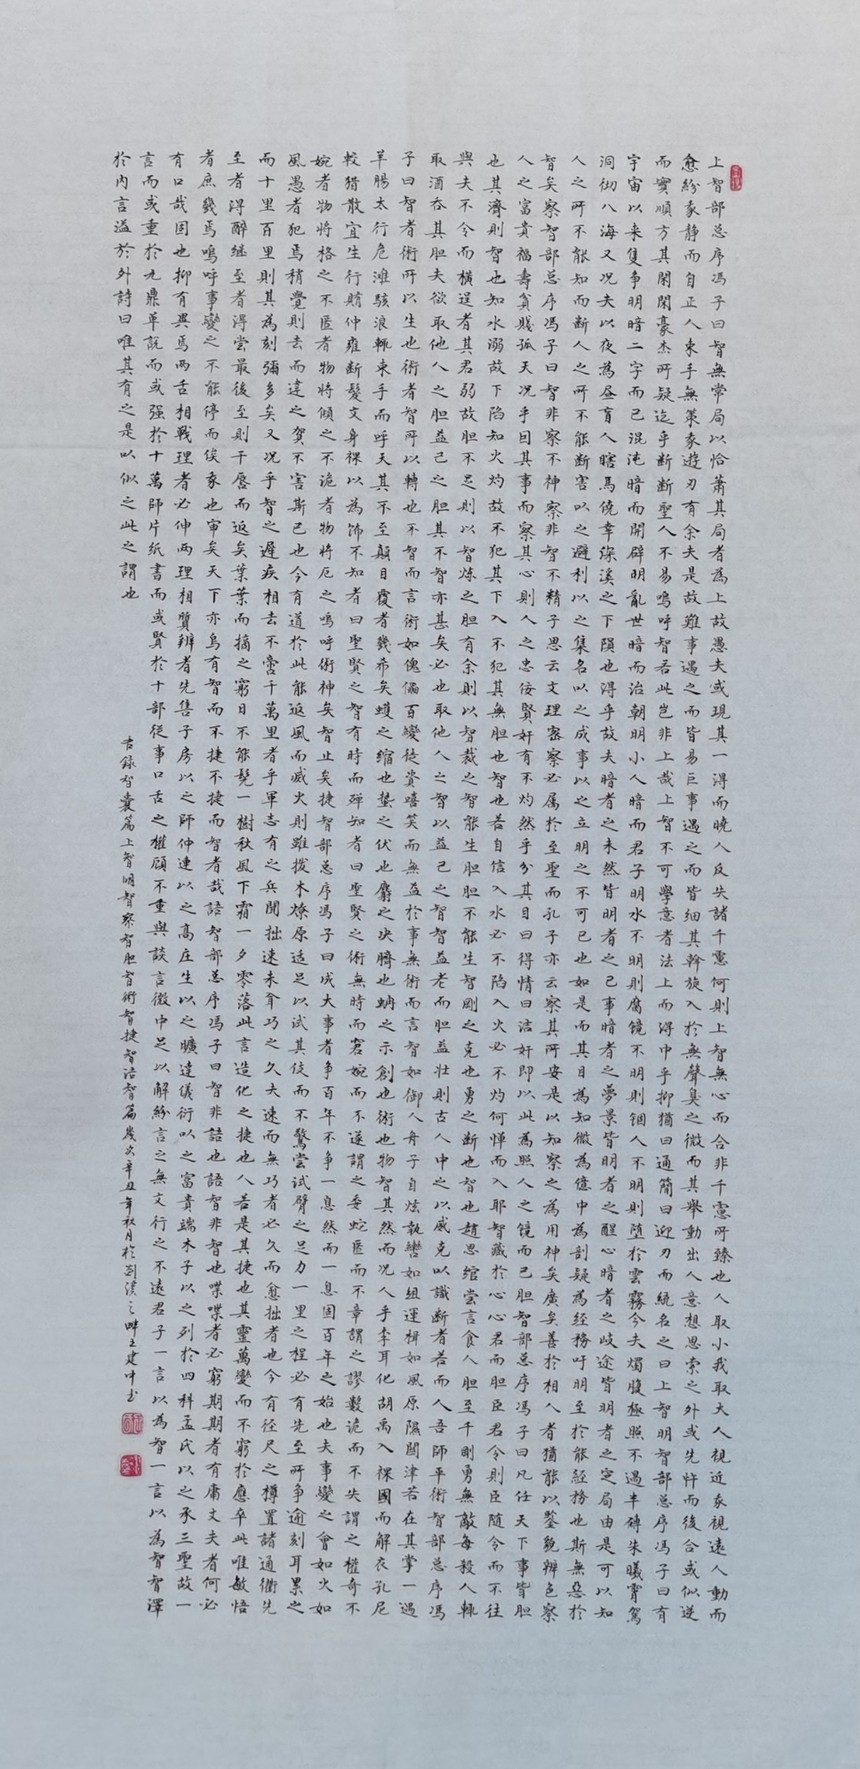 上智部总序冯子曰智無常局以恰肅其局者為上故愚夫或現其一得而曉人反失諸千慮何則上智無心而合非千慮所臻也人取小我取大人視近我視遠人動而
愈紛我静而自正人束手無策我遊刃有余夫是故難事遇之而皆易巨事遇之而皆細其斡旋入於無聲臭之微而其舉動出人意想思索之外或先忤而後合或似逆
而實順方其閑閑豪杰所疑迄乎斷斷聖人不易嗚呼智若此豈非上哉上智不可學意者法上而得中乎抑猶曰通簡曰迎刃而統名之曰上智明智部总序馮子曰有
宇宙以来隻争明暗二字而已混沌暗而開辟明亂世暗而治朝明小人暗而君子明水不明則腐镜不明則锢人不明則堕於雲霧今夫燭腹極照不過半磚朱曦霄駕
洞彻八海又况夫以夜為昼盲人瞎馬僥幸深溪之下隕也得乎故夫暗者之未然皆明者之已事暗者之夢景皆明者之醒心暗者之岐途皆明者之定局由是可以知
人之所不能知而断人之所不能断害以之避利以之集名以之成事以之立明之不可已也如是而其目為知微為億中為剖疑為经務吁明至於能经務也斯無惡於
智矣察智部总序馮子曰智非察不神察非智不精子思云文理密察必属於至聖而孔子亦云察其所安是以知察之為用神矣廣矣善於相人者猶能以鉴貌辨色察
人之富貴福壽貧賤孤夭况乎因其事而察其心則人之忠佞賢奸有不灼然乎分其目曰得情曰诘奸即以此為照人之镜而已胆智部总序馮子曰凡任天下事皆胆
也其濟則智也知水溺故不陷知火灼故不犯其不入不犯其無胆也智也若自信入水必不陷入火必不灼何憚而不入耶智藏於心心君而胆臣君令則臣随令而不往
與夫不令而横逞者其君弱故胆不足則以智炼之胆有余則以智裁之智能生胆胆不能生智剛之克也勇之断也智也趙思绾尝言食人胆至千剛勇無敵每殺人輒
取酒吞其胆夫欲取他人之胆益己之胆其不智亦甚矣必也取他人之智以益己之智智益老而胆益壮則古人中之以威克以識断者若而人吾師乎術智部总序馮
子曰智者術所以生也術者智所以轉也不智而言術如傀儡百變徒資嘻笑而無益於事無術而言智如御人舟子自炫執轡如组運楫如風原隰關津若在其掌一遇
羊腸太行危滩骇浪輒束手而呼天其不至颠且覆者幾希矣蠖之缩也蛰之伏也麝之决臍也蚺之示創也術也物智其然而况人乎李耳化胡禹入裸國而解衣孔尼
較猎散宜生行賄仲雍断髮文身裸以為饰不知者曰聖賢之智有時而殚知者曰聖賢之術無時而窘婉而不遂謂之委蛇匿而不章謂之謬數诡而不失謂之權奇不
婉者物將格之不匿者物將倾之不诡者物將厄之嗚呼術神矣智止矣捷智部总序馮子曰成大事者争百年不争一息然而一息固百年之始也夫事變之會如火如
風愚者犯焉稍覺則去而違之賀不害斯已也今有道於此能返風而滅火則雖拔木燎原适足以试其伎而不驚尝试譬之足力一里之程必有先至所争逾刻耳累之
而十里百里則其為刻彌多矣又况乎智之遲疾相去不啻千萬里者乎軍志有之兵聞拙速未聞巧之久夫速而無巧者必久而愈拙者也今有径尺之樽置諸通衢先
至者得醉继至者得尝最後至則干唇而返矣葉葉而摘之窮日不能髡一樹秋風下霜一夕零落此言造化之捷也人若是其捷也其靈萬變而不窮於應卒此唯敏悟
者庶幾焉嗚呼事變之不能停而俟我也审矣天下亦烏有智而不捷不捷而智者哉語智部总序馮子曰智非語也語智非智也喋喋者必窮期期者有庸丈夫者何必
有口哉固也抑有異焉两舌相戰理者必伸两理相質辨者先售子房以之師仲連以之高庄生以之曠達儀衍以之富貴端木子以之列於四科孟氏以之承三聖故一
言而或重於九鼎單說而或强於十萬師片紙書而或賢於十部從事口舌之權顧不重與談言微中足以解紛言之無文行之不遠君子一言以為智一言以為智智澤
於内言溢於外詩曰唯其有之是以似之此之謂也
右錄智囊篇上智明智察智胆智術智捷智語智篇歲次辛丑年秋月於剡溪之畔王建中書